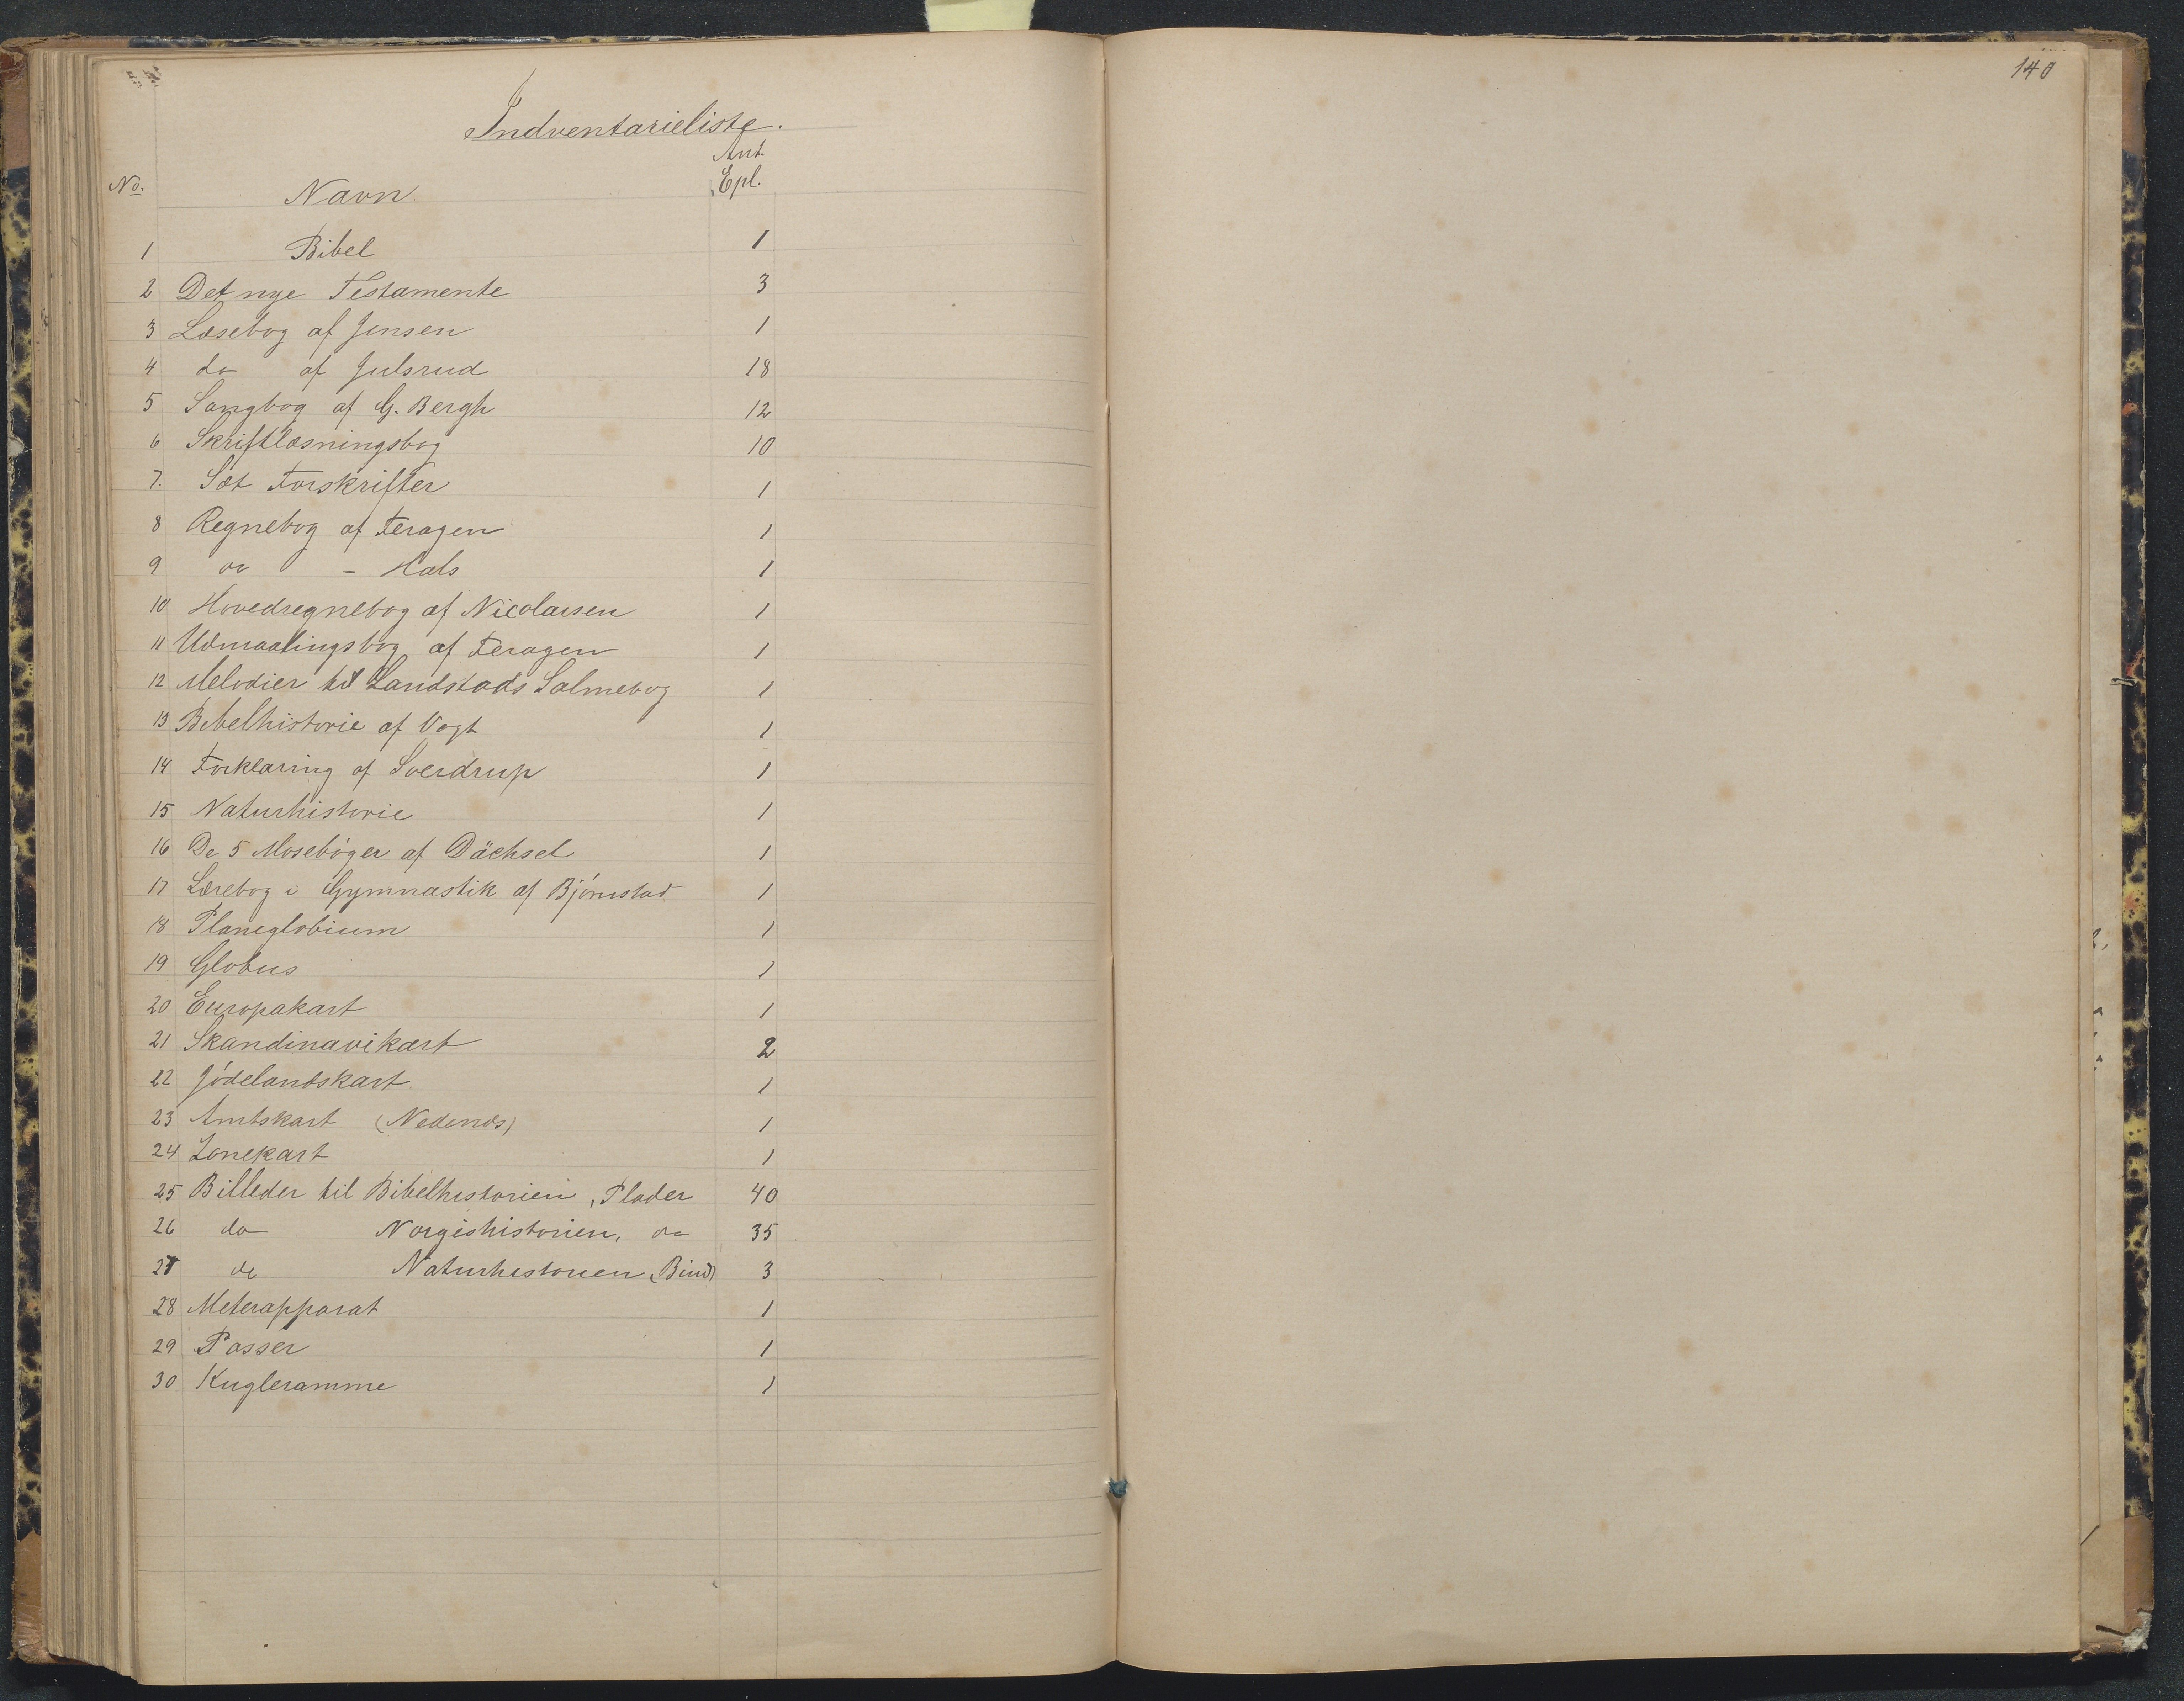 Indventarieliste.
Ant.
No. Navn. Epl.
1 Bibel 1
2 Det nye Testamente 3
3 Læsebog af Jensen 1
4 do af Julsrud 18
5 Sangbog af G. Bergh 12
6 Skriftlæsningsbog 10
7. Sæt Forskrifter 1
8 Regnebog af Feragen 1
9 do – Hals 1
10 Hovedregnebog af Nicolaisen 1
11 Udmaalingsbog af Feragen 1
12 Melodier til Landstads Salmebog 1
13 Bibelhistorie af Vogt 1
14 Forklaring af Sverdrup 1
15 Naturhistorie 1
16 De 5 Mosebøger af Dächsel 1
17 Lærebog i Gymnastik af Bjørnstad 1
18 Planiglobium 1
19 Globus 1
20 Europakart 1
21 Skandinavikart 2
22 Jødelandskart 1
23 Amtskart (Nedenæs) 1
24 Zonekart 1
25 Billeder til Bibelhistorien, Plader 40
26 do Norgeshistorien, do 35
27 do Naturhistorien (Bind) 3
28 Meterapparat 1
29 Passer 1
30 Kugleramme 1
140